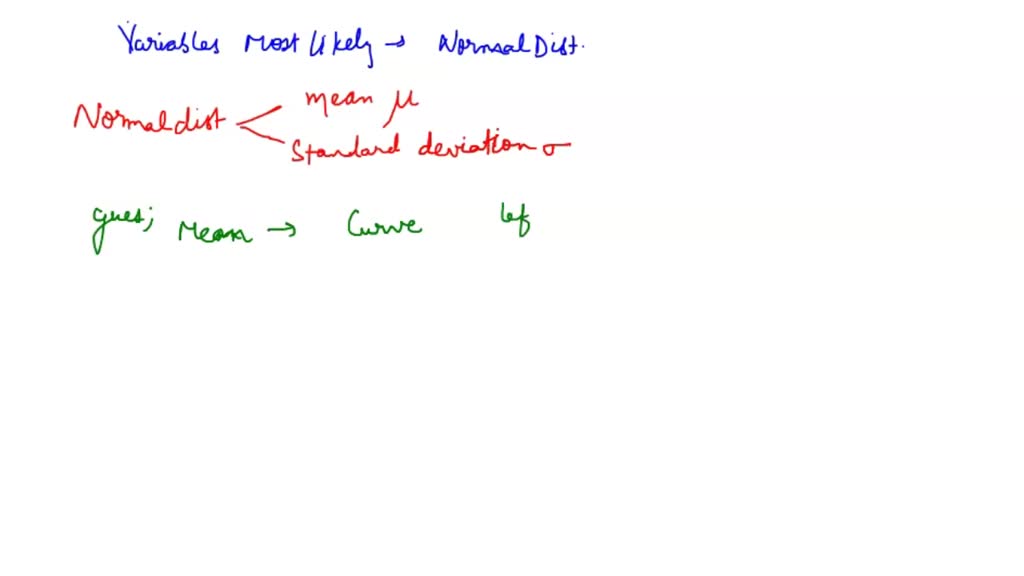 Variables Most likely → Normal Dist.
Normal dist < mean μ
Standard deviation σ
gues; Mean → Curve lef